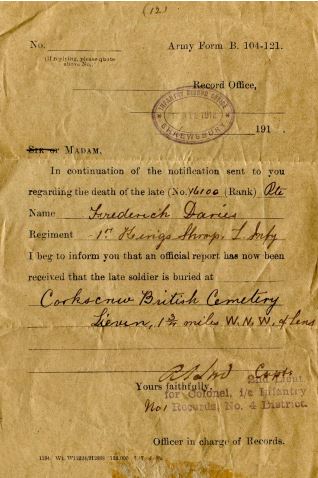 (12)
No.
Army Form B. 104-121.
(If replying, please quote
above No.)
Record Office,
INFANTRY RECORD OFFICE
SHREWSBURY
191
Sir or Madam,
In continuation of the notification sent to you
regarding the death of the late (No. 16100 (Rank) Pte
Name Frederich Davies
Regiment 1st Kings Shrop. L. Infy
I beg to inform you that an official report has now been
received that the late soldier is buried at
Corkscrew British Cemetery
Lievin, 1¾ miles W.N.W. of Lens
Capt
Yours faithfully,
2nd Lieut.
for Colonel, i/c Infantry
No 1 Records, No. 4 District.
Officer in charge of Records.